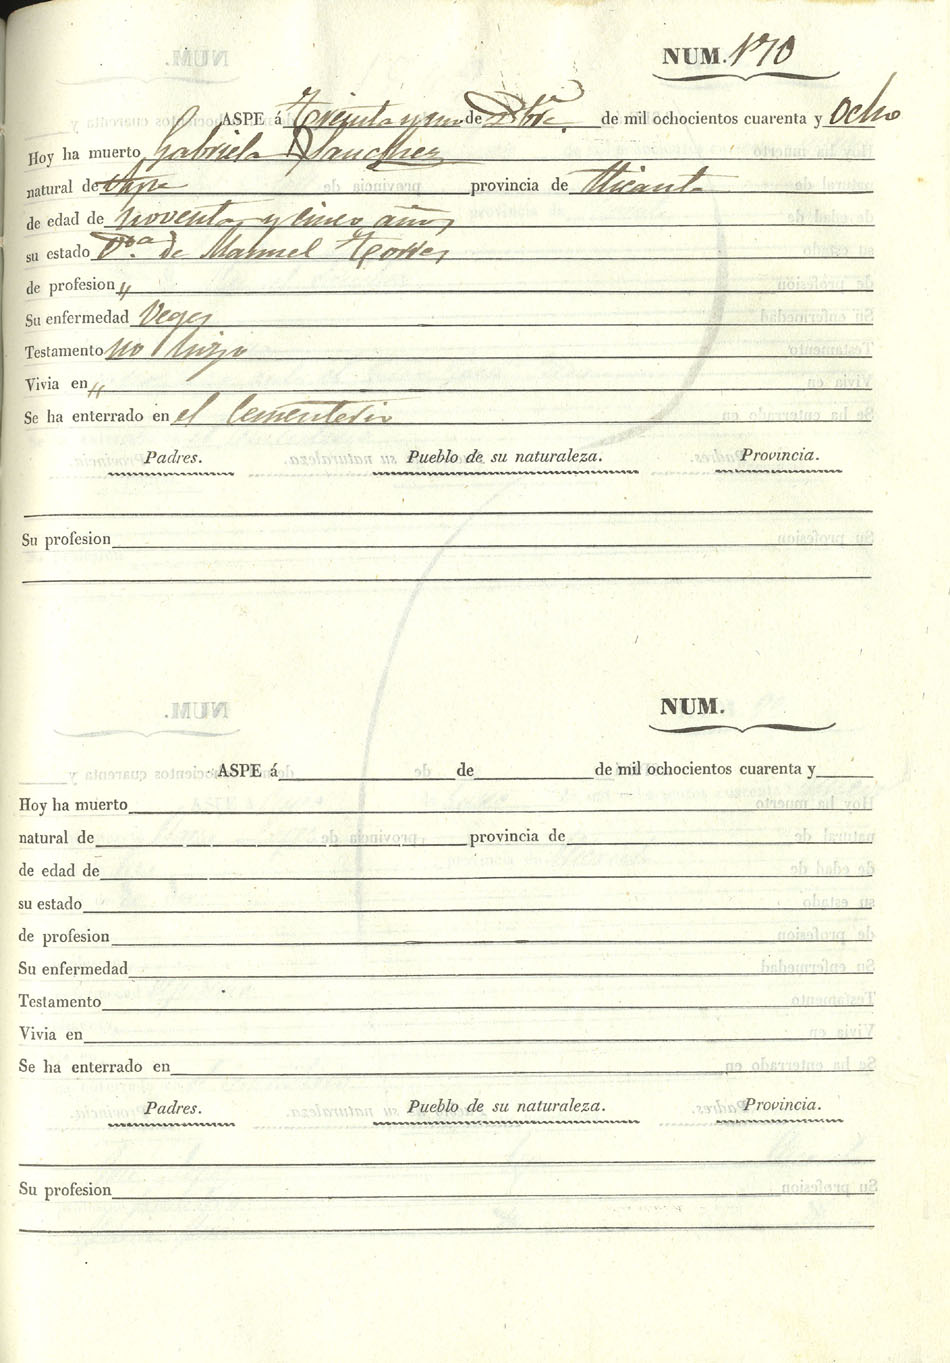 NUM. 170
ASPE á Treinta y uno de Dbre. de mil ochocientos cuarenta y Ocho
Hoy ha muerto Gabriela Sanchez
natural de Aspe provincia de Alicante
de edad de noventa y cinco años
su estado Vda. de Manuel Torres
de profesion "
Su enfermedad Vegez
Testamento no hizo
Vivia en "
Se ha enterrado en el Cementerio
Padres. Pueblo de su naturaleza. Provincia.
Su profesion
NUM.
ASPE á de de mil ochocientos cuarenta y
Hoy ha muerto
natural de provincia de
de edad de
su estado
de profesion
Su enfermedad
Testamento
Vivia en
Se ha enterrado en
Padres. Pueblo de su naturaleza. Provincia.
Su profesion